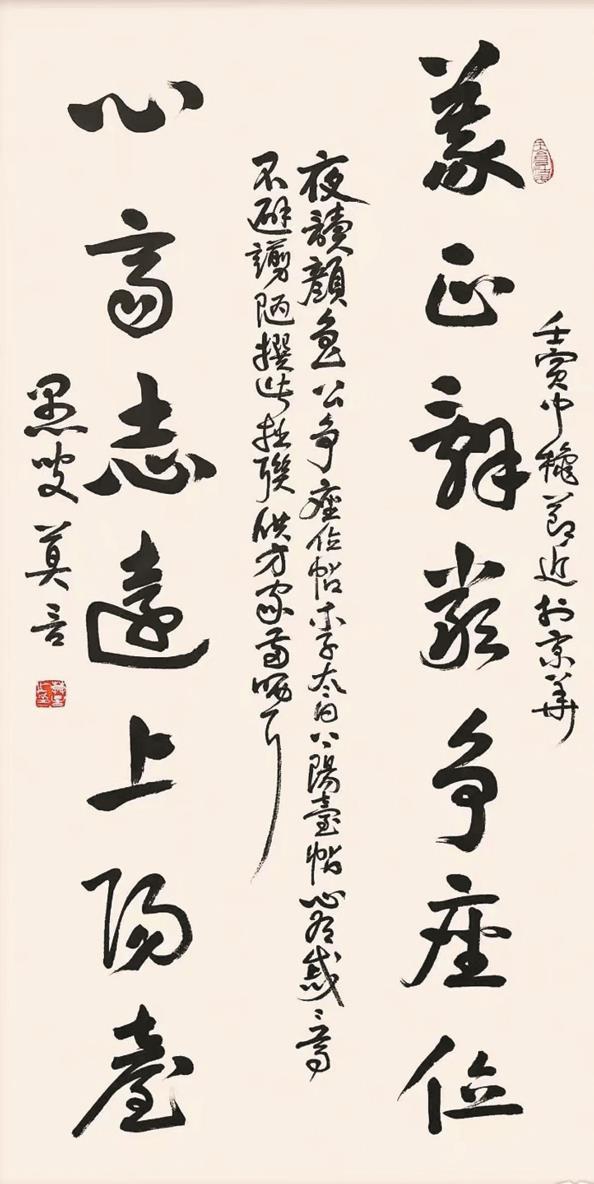 壬寅中穐節近於京華
義正辭嚴争座位
夜讀顔魯公争座位帖李太白上陽臺帖心有戚〻焉
不避謭陋撰此拙聯供方家哂耳
心高志遠上陽臺
愚叟莫言